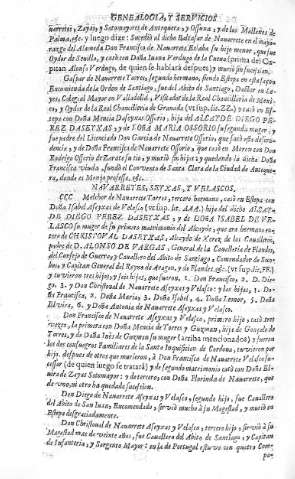 GENEALOGIA, Y SERVICIOS
nauretes, Zayas, y Sotomayores de Antequera, y Ossuna, y de los Malleñes de
Palma, etc. y luego dize: Sucedió al dicho Baltasar de Nauarrete en el mayo-
razgo del Alameda Don Francisco de Nauarrete Rolaho su hijo menor, que fue
Oydor de Seuilla, y casò con Doña Iuana Verdugo de la Cueua (prima del Ca-
pitan Alonso Verdugo, de quien se hablarà despues) y murió sin sucession.
Gaspar de Nauarrete Torres, segundo hermano, siendo Estepa en esta sazon
Encomienda de la Orden de Santiago, fue del Abito de Santiago, Doctor en Le-
yes, Colegial Mayor en Valladolid, y Visitador de la Real Chancilleria de Mexi-
co, y Oydor de la Real Chancilleria de Granada
casò en Este-
pa con Doña Mencia Daseyxas Ossorio, hija del ALCAYDE DIEGO PE-
REZ DASEYXAS, y de DOÑA MARIA OSSORIO su segunda muger, y
fue padre del Licenciado Don Garcia de Nauarrete Ossorio, que fuè desta descen-
dencia, y de Doña Francisca de Nauarrete Ossorio, que casò en Moron con Don
Rodrigo Osorio de Zarate su tio, y murió sin hijos; y quedando la dicha Doña
Francisca viuda, fundò el Conuento de Santa Clara de la Ciudad de Anteque-
ra, donde es Monja professa, etc.
NAVARRETES, SEYXAS, Y VELASCOS.
CCC. Melchor de Nauarrete Torres, tercero hermano, casò en Estepa con
Doña Isabel Aseyxas de Velasco
hija del dicho ALCAY-
DE DIEGO PEREZ DASEYXAS, y de DOÑA ISABEL DE VE-
LASCO su muger de su primero matrimonio del Alcayde, que era hermana en-
tera de CHRISTOVAL DASEYXAS, Alcayde de Xerez de los Caualleros,
padre de D. ALONSO DE VARGAS, General de la Caualleria de Flandes,
del Consejo de Guerra, y Cauallero del Abito de Santiago, Comendador de
y Capitan General del Reyno de Aragon, y de Flandes, etc.
y tuuieron tres hijos, y seis hijas, que fueron, 1. Don Francisco, 2. D. Die-
go. 3. y Don Christoual de Nauarrete Aseyxas y Velasco: y las hijas, 1. Do-
ña Francisca, 2. Doña Maria, 3. Doña Isabel, 4. Doña Leonor, 5. Doña
Eluira, 6. y Doña Antonia de Nauarrete Aseyxas y Velasco.
Don Francisco de Nauarrete Aseyxas y Velasco, primero hijo, casò tres
vezes, la primera con Doña Mencia de Torres y Guzman, hija de Gonçalo de
Torres, y de Doña Inès de Guzman su muger (arriba mencionados) y fueron
los dos consuegros Familiares de la Santa Inquisicion de Cordoua, y tuuieron vn
hijo, despues de otros que murieron, à Don Francisco de Nauarrete Velasco su-
cessor (de quien luego se tratarà) y de segundo matrimonio casò con Doña El-
uira de Zayas Sotomayor: y de tercero, con Doña Florinda de Nauarrete, que
de vno, ni otro ha quedado sucession.
Don Diego de Nauarrete Aseyxas y Velasco, segundo hijo, fue Cauallero
del Abito de San Iuan, Encomendado, y siruió mucho à su Magestad, y murió en
Estepa desgraciadamente.
Don Christoual de Nauarrete Aseyxas y Velasco, tercero hijo, siruió à su
Magestad mas de veinte años, fue Cauallero del Abito de Santiago, y Capitan
de Infanteria, y Sargento Mayor: en la de Portugal estuuo con quatro Com-
pa-